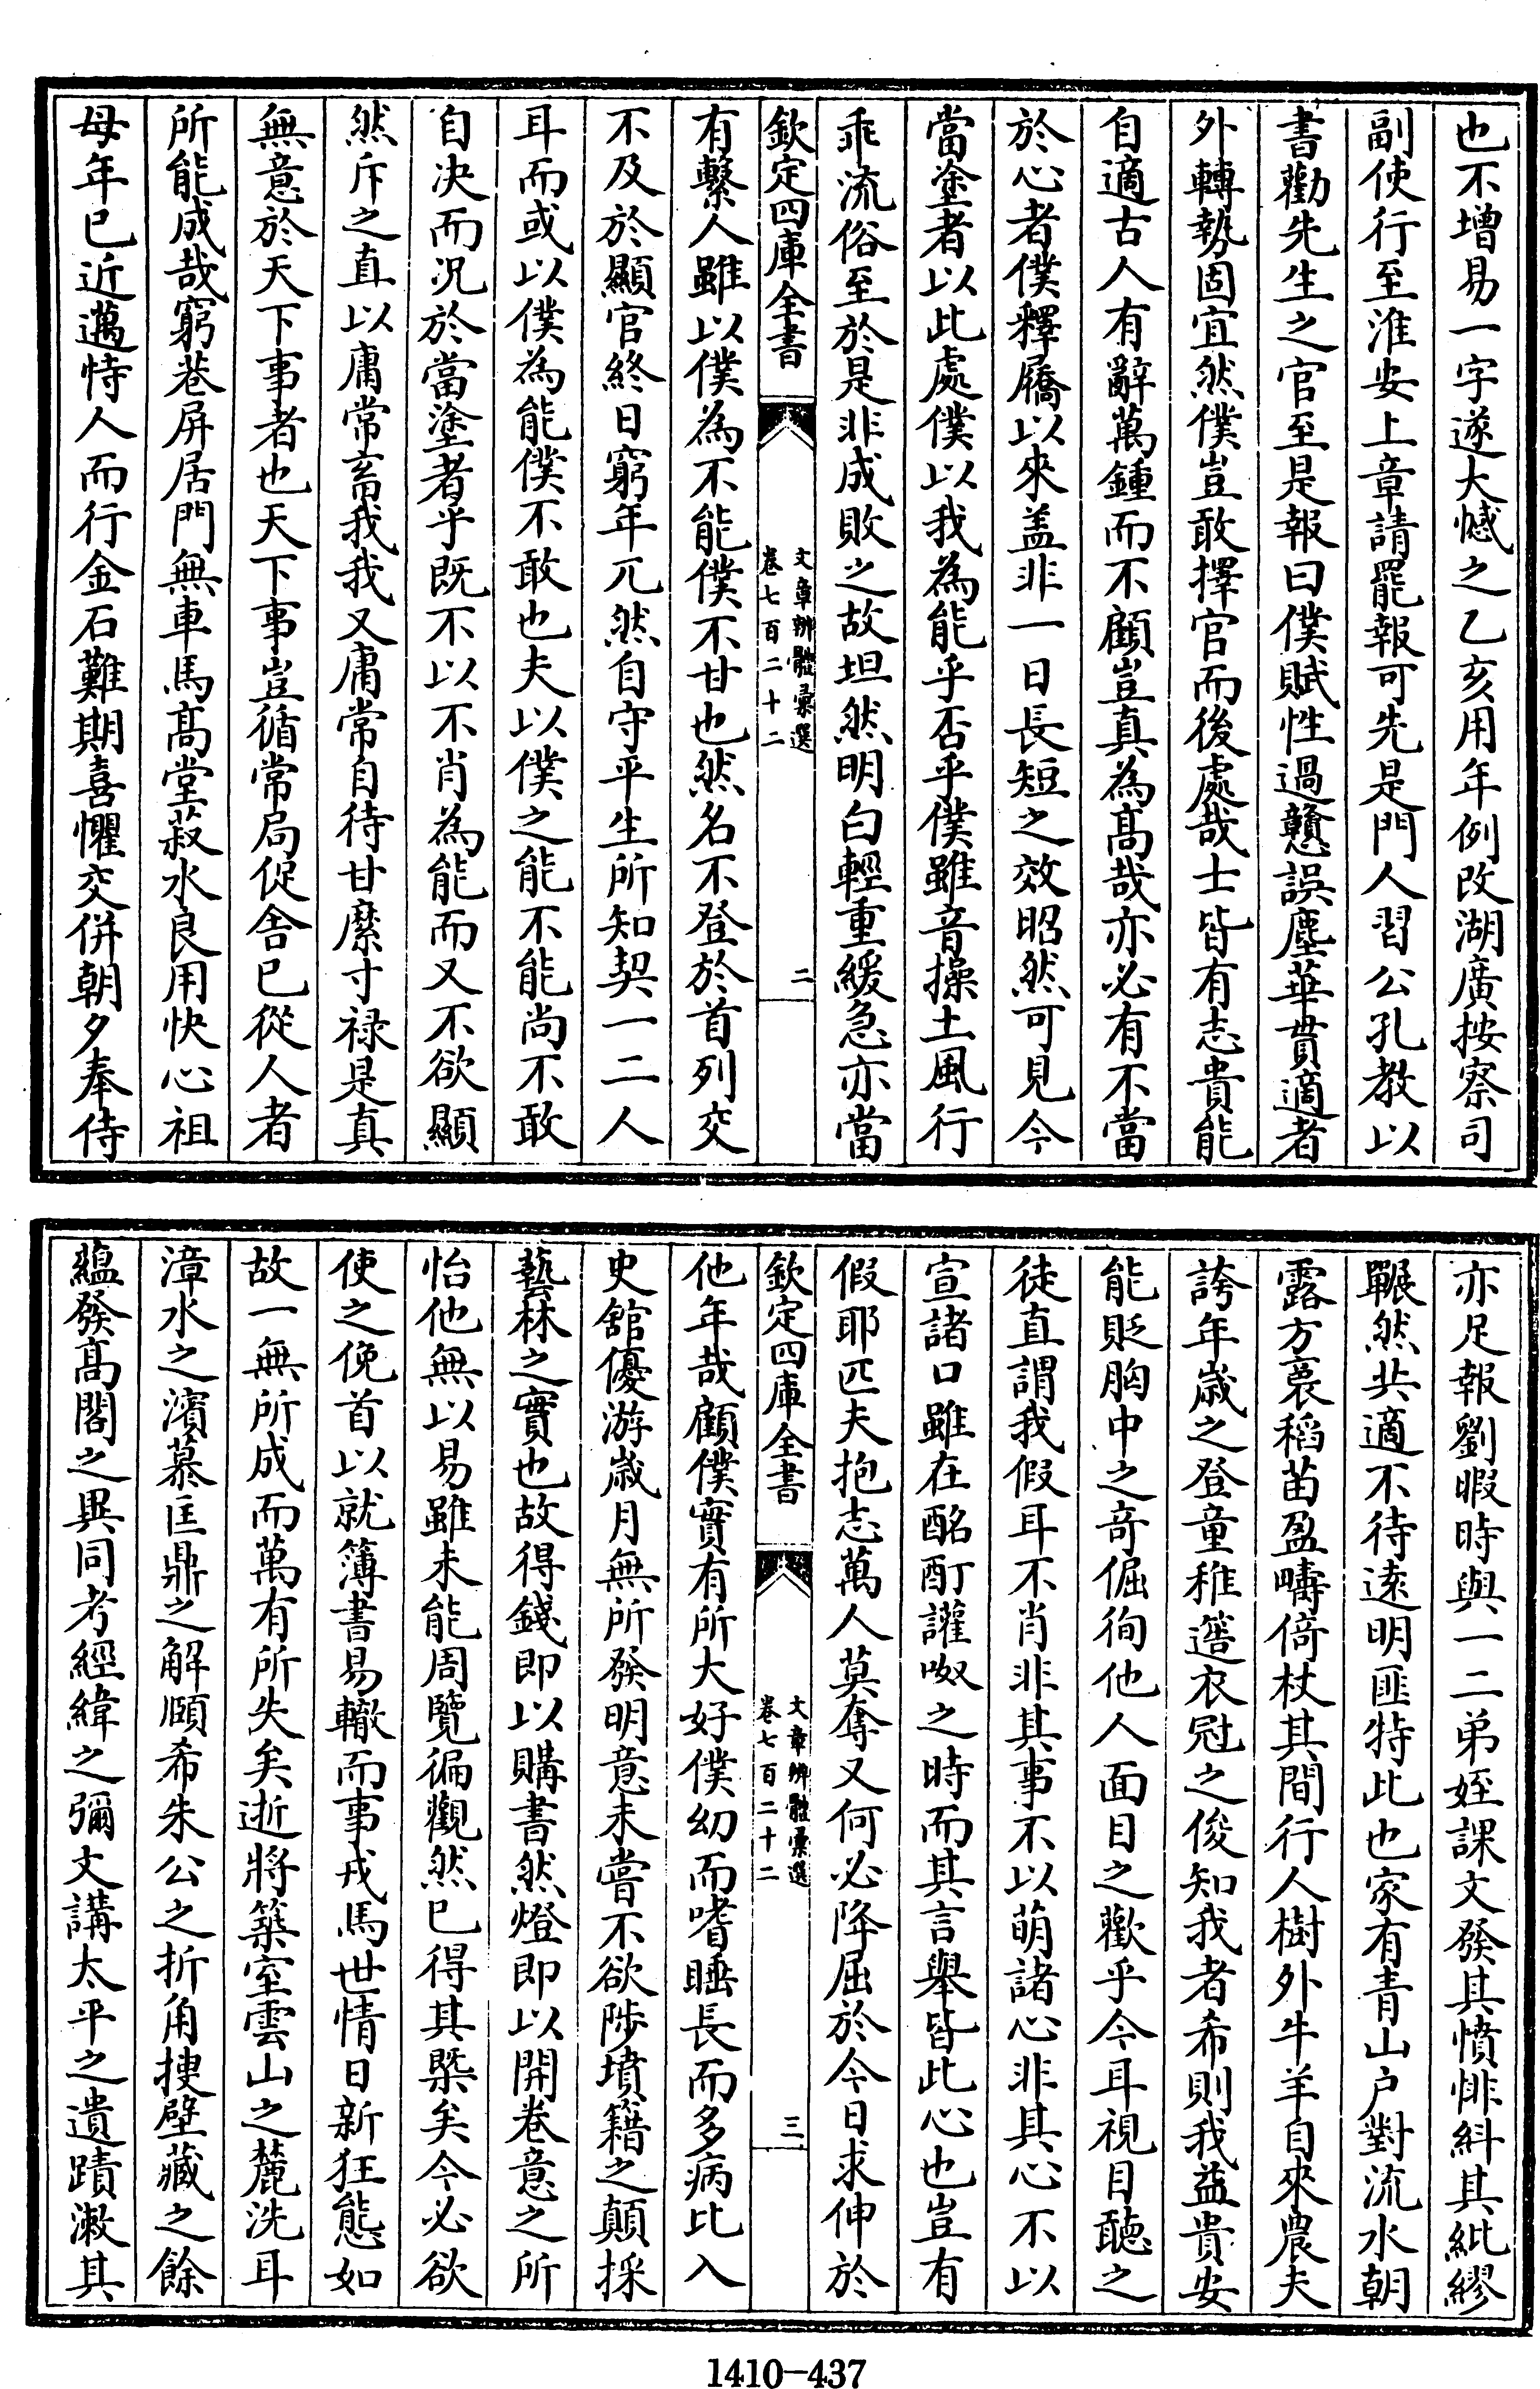 也不增易一字遂大憾之乙亥用年例改湖廣按察司
副使行至淮安上章請罷報可先是門人習公孔教以
書勸先生之官至是報曰僕賦性過戇誤塵華貫適者
外轉勢固宜然僕豈敢擇官而後處哉士皆有志貴能
自適古人有辭萬鍾而不顧豈真為髙哉亦必有不當
於心者僕釋屩以來盖非一日長短之效昭然可見今
當塗者以此處僕以我為能乎否乎僕雖音操土風行
乖流俗至於是非成敗之故坦然明白輕重緩急亦當
欽定四庫全書
文章辨體彙選
卷七百二十二
二
有繫人雖以僕為不能僕不甘也然名不登於首列交
不及於顯官終日窮年兀然自守平生所知契一二人
耳而或以僕為能僕不敢也夫以僕之能不能尚不敢
自决而况於當塗者乎既不以不肖為能而又不欲顯
然斥之直以庸常畜我我又庸常自待甘縻寸禄是真
無意於天下事者也天下事豈循常局促舍已從人者
所能成哉窮巷屏居門無車馬髙堂菽水良用快心祖
母年已近邁恃人而行金石難期喜懼交併朝夕奉侍
亦足報劉暇時與一二弟姪課文發其憤悱糾其紕繆
囅然共適不待逺明匪特此也家有青山户對流水朝
露方裛稻苗盈疇倚杖其間行人樹外牛羊自來農夫
誇年歲之登童稚簉衣冠之俊知我者希則我益貴安
能貶胸中之竒倔徇他人面目之歡乎今耳視目聽之
徒直謂我假耳不肖非其事不以萌諸心非其心不以
宣諸口雖在酩酊讙呶之時而其言舉皆此心也豈有
假耶匹夫抱志萬人莫奪又何必降屈於今日求伸於
欽定四庫全書
文章辨體彙選
卷七百二十二
三
他年哉顧僕實有所大好僕幼而嗜睡長而多病比入
史館優游歲月無所發明意未嘗不欲陟墳籍之顛採
藝林之實也故得錢即以購書然燈即以開卷意之所
怡他無以易雖未能周覽徧觀然已得其槩矣今必欲
使之俛首以就簿書易轍而事戎馬世情日新狂態如
故一無所成而萬有所失矣逝將築室雲山之麓洗耳
漳水之濱慕匡鼎之解頤希朱公之折角捜壁藏之餘
藴發髙閣之異同考經緯之彌文講太平之遺蹟漱其
1410-437